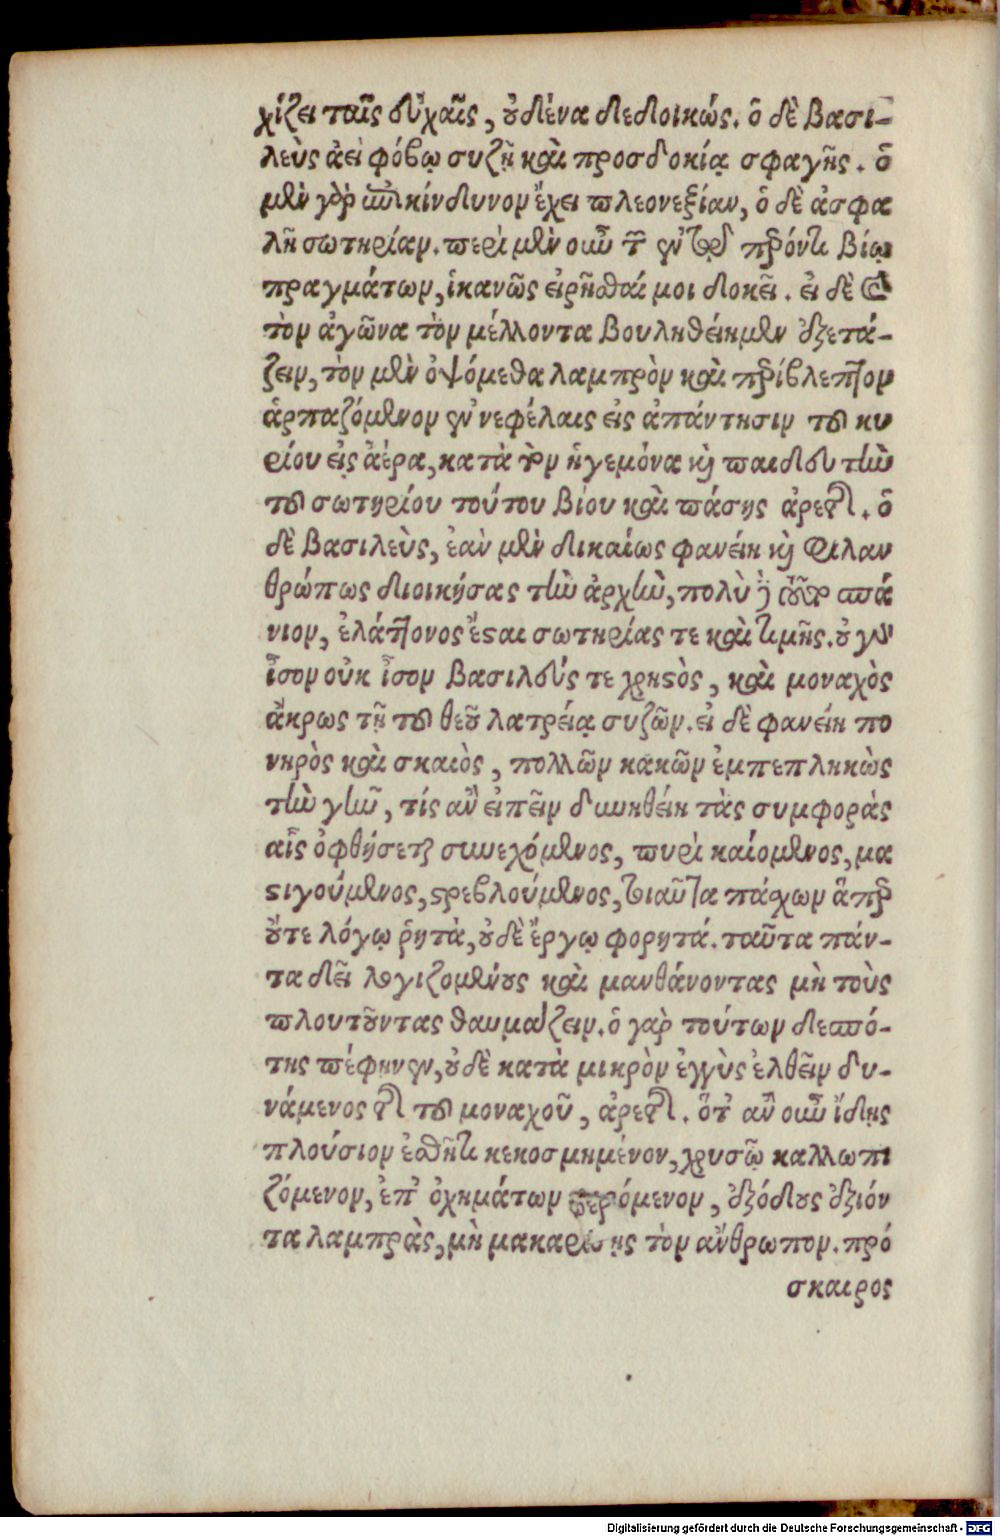 χίζει ταῖς εὐχαῖς, οὐδένα δεδοικώς. ὁ δὲ βασι-
λεὺς ἀεὶ φόβῳ συζῇ καὶ προσδοκίᾳ σφαγῆς. ὁ
μὲν γὰρ ἐπικίνδυνον ἔχει πλεονεξίαν, ὁ δὲ ἀσφα
λῆ σωτηρίαν. περὶ μὲν οὖν τῶν ἐν τῷ παρόντι βίῳ
πραγμάτων, ἱκανῶς εἰρῆσθαί μοι δοκεῖ. εἰ δὲ καὶ
τὸν ἀγῶνα τὸν μέλλοντα βουληθείημεν ἐξετά-
ζειν, τὸν μὲν ὀψόμεθα λαμπρὸν καὶ περίβλεπτον
ἁρπαζόμενον ἐν νεφέλαις εἰς ἀπάντησιν τοῦ κυ
ρίου εἰς ἀέρα, κατὰ τὸν ἡγεμόνα καὶ παιδευτὴν
τοῦ σωτηρίου τούτου βίου καὶ πάσης ἀρετῆς. ὁ
δὲ βασιλεὺς, ἐὰν μὲν δικαίως φανείη καὶ φιλαν
θρώπως διοικήσας τὴν ἀρχὴν, πολὺ δὲ τοῦτο σπά
νιον, ἐλάττονος ἔσται σωτηρίας τε καὶ τιμῆς. οὐ γὰρ
ἶσον οὐκ ἶσον βασιλεύς τε χρηστὸς, καὶ μοναχὸς
ἄκρως τῇ τοῦ θεοῦ λατρείᾳ συζῶν. εἰ δὲ φανείη πο
νηρὸς καὶ σκαιὸς, πολλῶν κακῶν ἐμπεπληκὼς
τὴν γῆν, τίς ἂν εἰπεῖν δυνηθείη τὰς συμφορὰς
αἷς ὀφθήσεται συνεχόμενος, πυρὶ καιόμενος, μα
στιγούμενος, στρεβλούμενος, τοιαῦτα πάσχων ἅπερ
οὔτε λόγῳ ῥητὰ, οὐδὲ ἔργῳ φορητά. ταῦτα πάν-
τα δεῖ λογιζομένους καὶ μανθάνοντας μὴ τοὺς
πλουτοῦντας θαυμάζειν. ὁ γὰρ τούτων δεσπό-
της πέφηνεν, οὐδὲ κατὰ μικρὸν ἐγγὺς ἐλθεῖν δυ-
νάμενος τῆς τοῦ μοναχοῦ, ἀρετῆς. ὅτ' ἂν οὖν ἴδῃς
πλούσιον ἐσθῆτι κεκοσμημένον, χρυσῷ καλλωπι
ζόμενον, ἐπ' ὀχημάτων φερόμενον, ἐξόδους ἐξιόν
τα λαμπρὰς, μὴ μακαρίσῃς τὸν ἄνθρωπον. πρό
σκαιρος
Digitalisierung gefördert durch die Deutsche Forschungsgemeinschaft - DFG